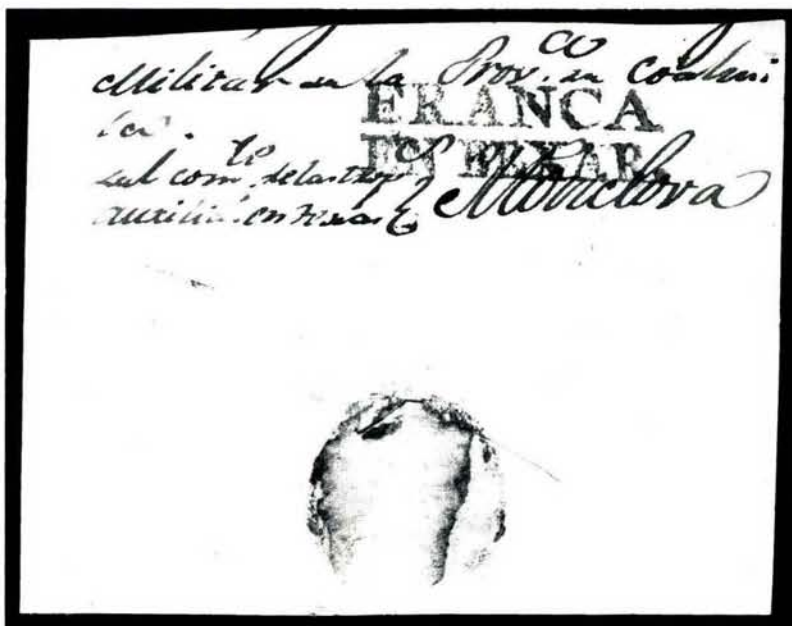 Militar en la Prov.ª de Coahui
la.
FRANCA
EN BEXAR.
Del com.te de las trop.s
auxilia.s en Texas Monclova